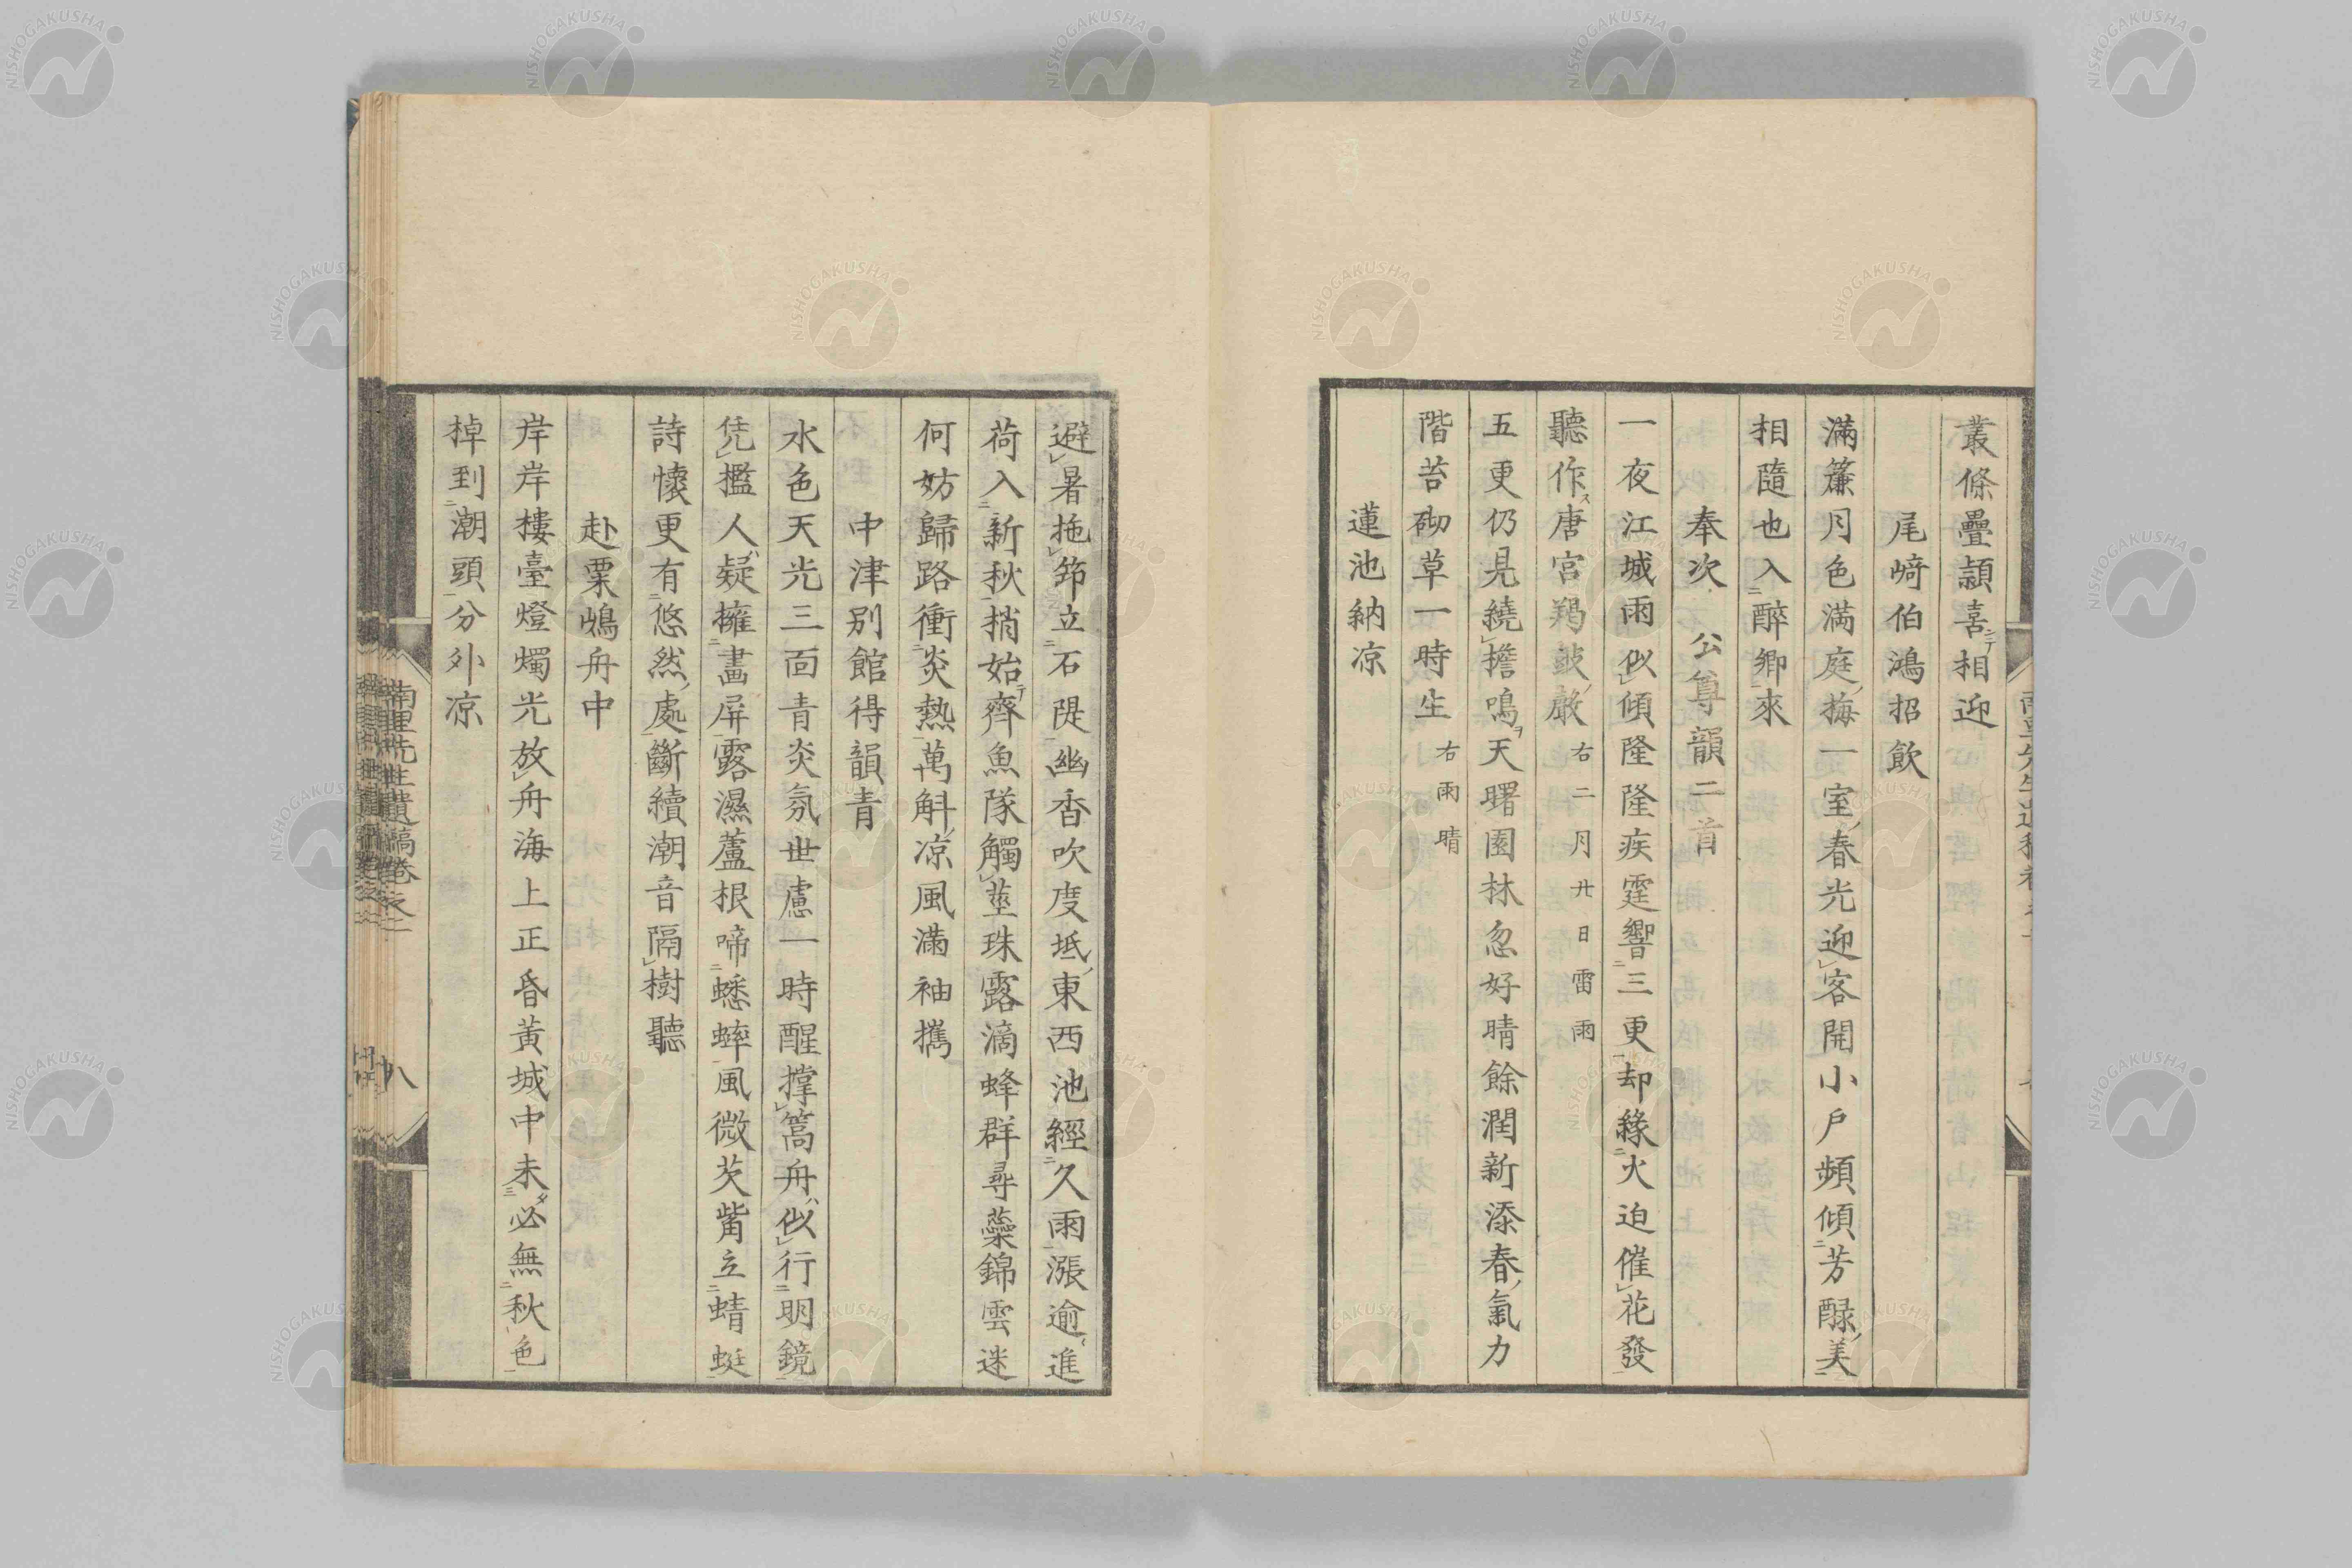 叢條疊頴喜相迎
尾﨑伯鴻招飲
滿簾月色滿庭梅一室春光迎客開小戶頻傾芳醁美
相隨也入醉鄉來
奉次 公尊韻二首
一夜江城雨似傾隆隆疾霆響三更却緣火迫催花發
聽作唐宮羯皷嚴 右二月廿日雷雨
五更仍見繞擔鳴天曙園林忽好晴餘潤新添春氣力
階苔砌草一時生 右雨晴
蓮池納凉
避暑拖筇立石隄幽香吹度坻東西池經久雨漲逾進
荷入新秋捎始齊魚隊觸莖珠露滴蜂群尋蘂錦雲迷
何妨歸路衝炎熱萬斛凉風滿袖攜
中津別館得韻青
水色天光三面青炎氛世慮一時醒撑篙舟似行明鏡
凭檻人疑擁畵屏露濕蘆根啼蟋蟀風微芡觜立蜻蜓
詩懷更有悠然處斷續潮音隔樹聽
赴粟嶋舟中
岸岸樓臺燈燭光放舟海上正昏黃城中未必無秋色
棹到潮頭分外凉
南里先生遺稿卷之二
八
NISHOGAKUSHA